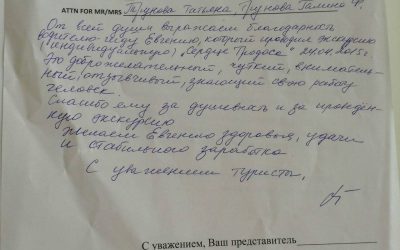 ATTN FOR MR/MRS Трунова Татьяна Трунова Галина Ф.
От всей души выражаем благодарность
водителю-гиду Евгению, который проводил экскурсию
(индивидуальную) "Сердце Троодоса" 24.04.2015г.
Это доброжелательный, чуткий, вниматель-
ный, отзывчивый, знающий свою работу
человек.
Спасибо ему за душевность и за проведен-
ную экскурсию
Желаем Евгению здоровья, удачи
и стабильного заработка
С уважением туристы,
С уважением, Ваш представитель